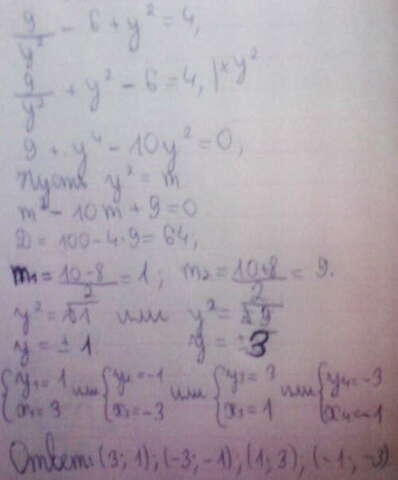 9/y² - 6 + y² = 4,
9/y² + y² - 6 = 4, | × y²
9 + y⁴ - 10y² = 0,
Пусть y² = m
m² - 10m + 9 = 0
D = 100 - 4·9 = 64,
m₁ = (10-8)/2 = 1; m₂ = (10+8)/2 = 9.
y² = 1 или y² = 9
y = ± 1 y = ± 3
{y₁ = 1 или {y₂ = -1 или {y₃ = 3 или {y₄ = -3
{x₁ = 3 {x₂ = -3 {x₃ = 1 {x₄ = -1
Ответ: (3; 1); (-3; -1), (1; 3), (-1; -3)